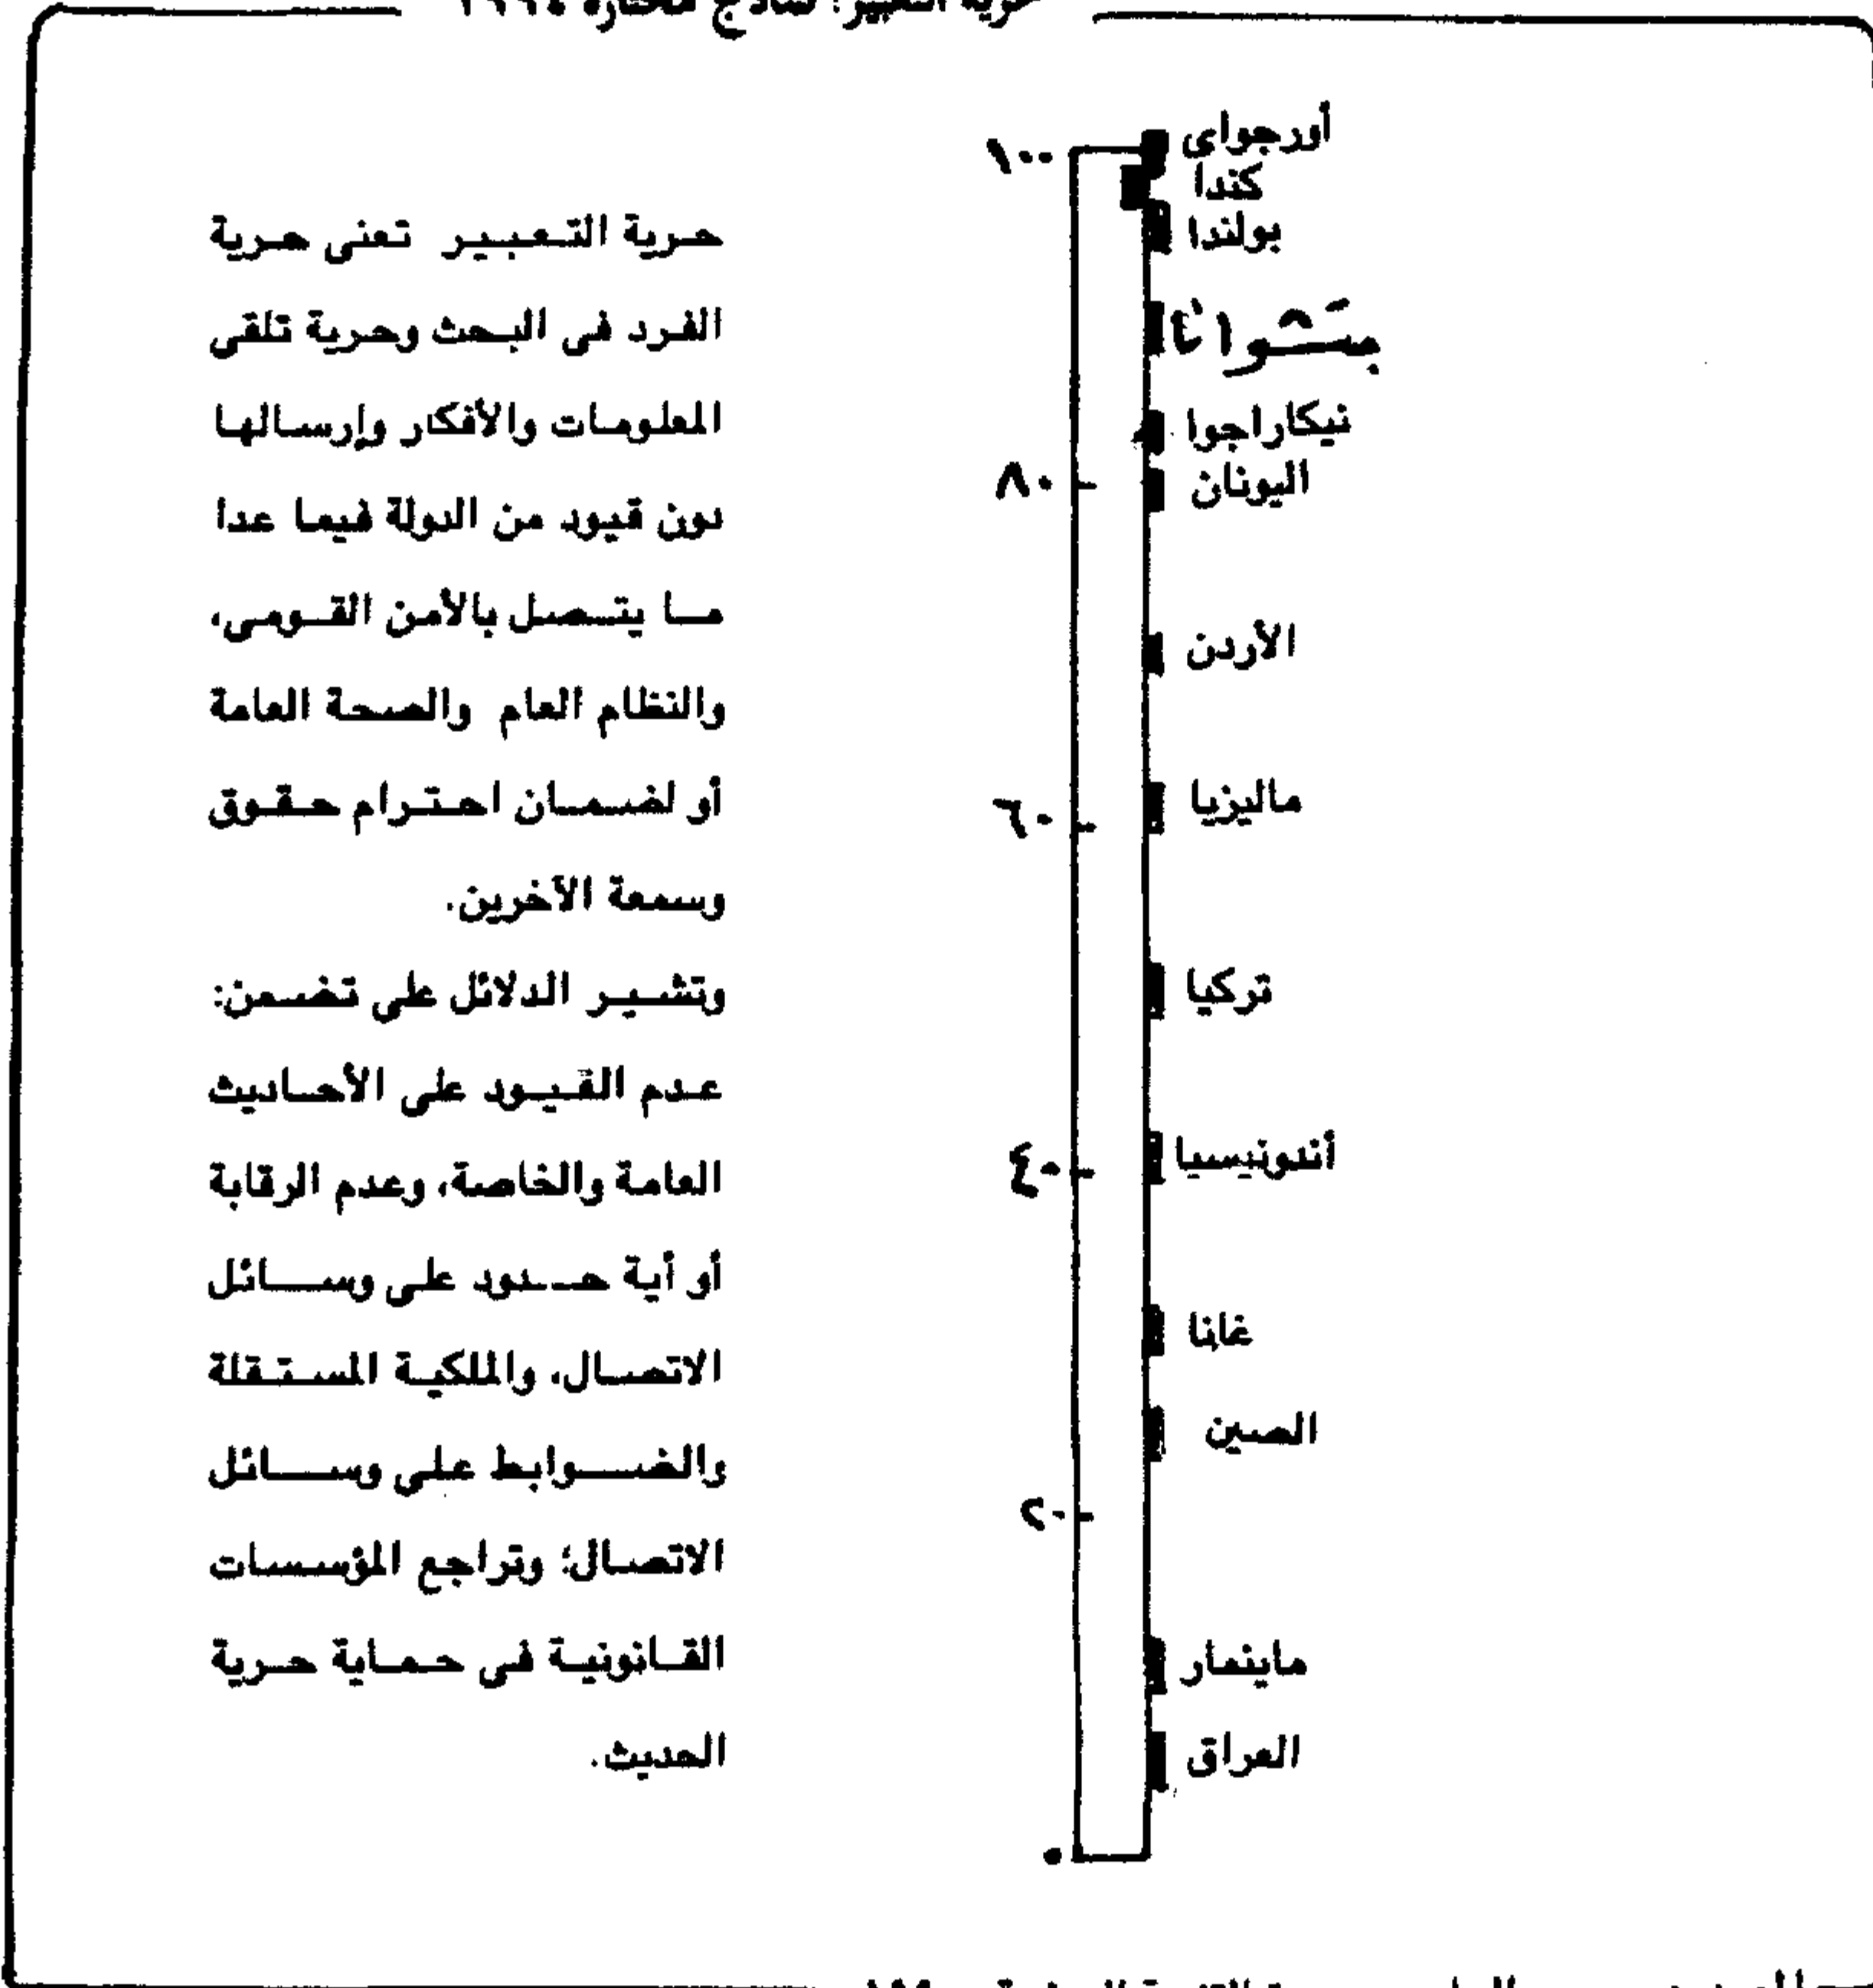 أورجواى
كندا
بولندا
بتسوانا
نيكاراجوا
اليونان
الأردن
ماليزيا
تركيا
أندونيسيا
غانا
الصين
ماينمار
العراق
١٠٠
٨٠
٦٠
٤٠
٢٠
٠
حرية التعبير تعنى حرية
الفرد فى البحث وحرية تلقى
المعلومات والأفكار وإرسالها
دون قيود من الدولة فيما عدا
ما يتصل بالأمن القومى،
والنظام العام والصحة العامة
أو لضمان احترام حقوق
وسمعة الآخرين.
وتشير الدلائل على تضمن:
عدم القيود على الأحاديث
العامة والخاصة، وعدم الرقابة
أو أية حدود على وسائل
الاتصال، والملكية المستقلة
والضوابط على وسائل
الاتصال؛ وتراجع المؤسسات
القانونية فى حماية حرية
الحديث.